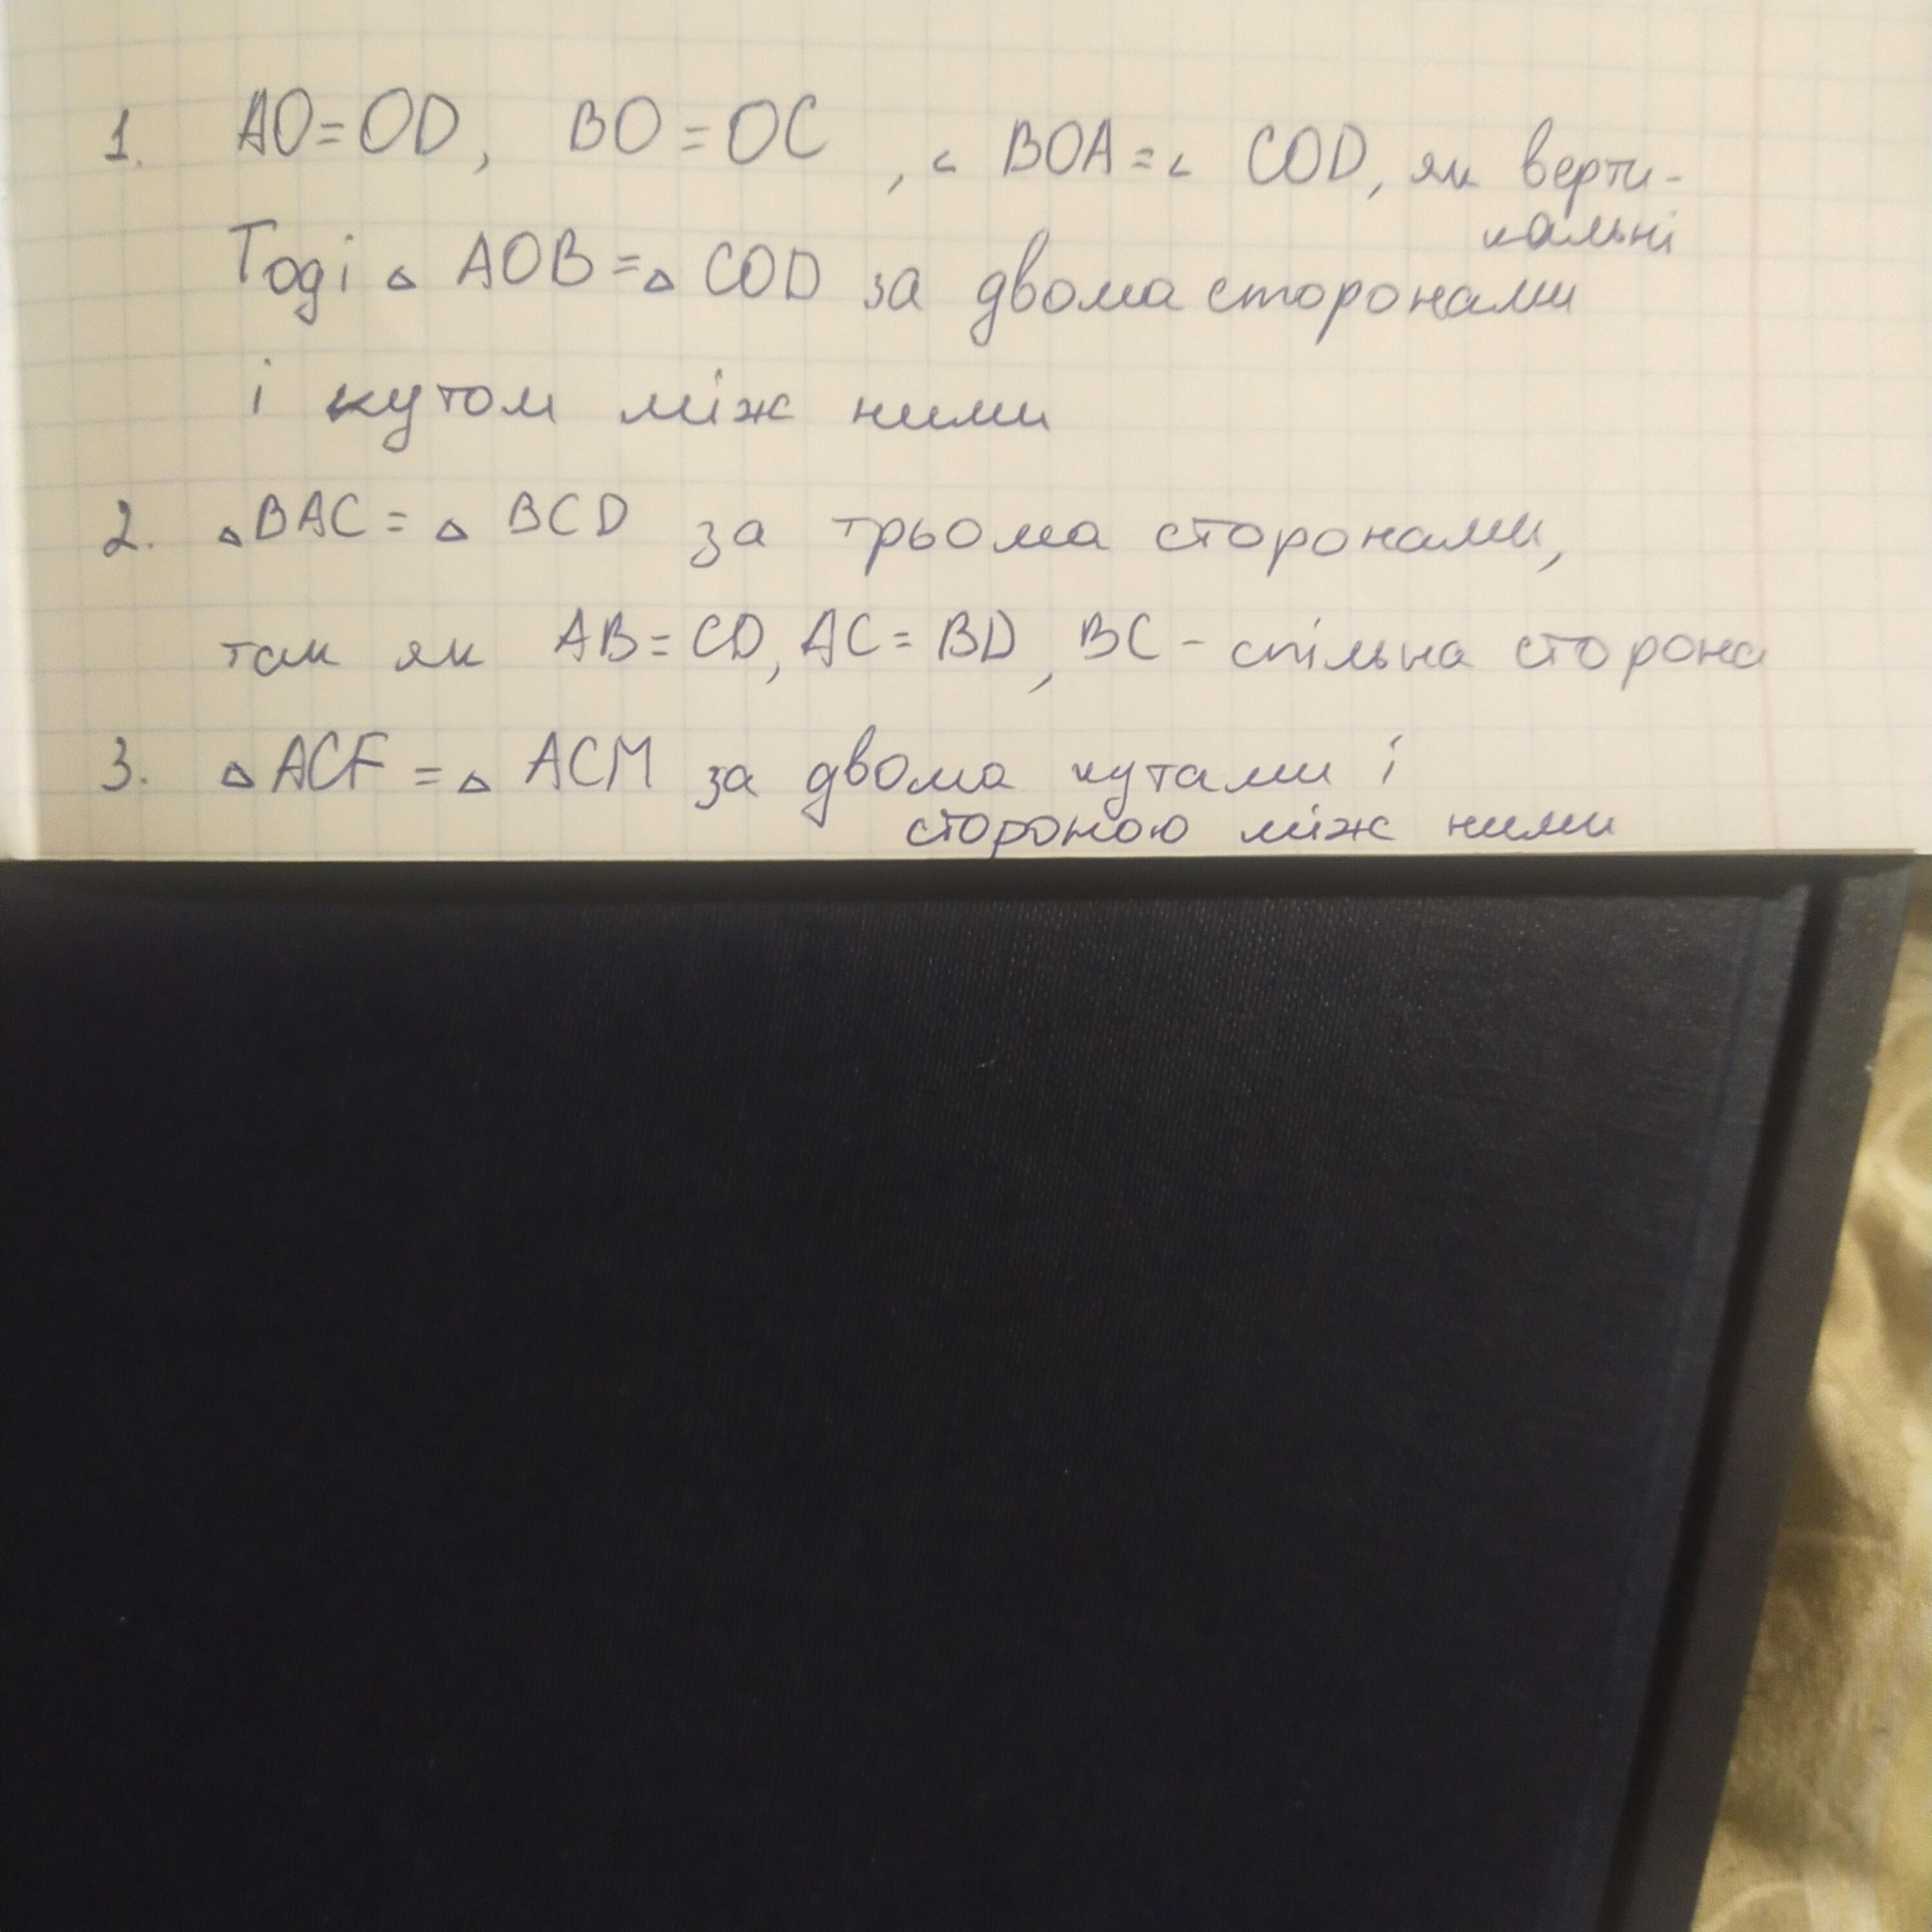 1. AO=OD, BO=OC, ∠ BOA=∠ COD, як верти-
кальні
Тоді △ AOB=△ COD за двома сторонами
і кутом між ними
2. △BAC= △ BCD за трьома сторонами,
так як AB=CD, AC=BD, BC- спільна сторона
3. △ACF=△ ACM за двома кутами і
стороною між ними